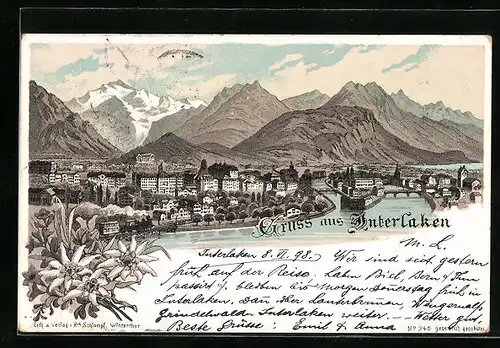 Gruss aus Interlaken
M. L.
Interlaken 8. VI. 98. Wir sind seit gestern
früh auf der Reise. Haben Biel, Bern & Thun
passirt & bleiben bis morgen Donnerstag früh in
Interlaken. Dan über Lauterbrunnen, Wengernalp,
Grindelwald Interlaken weiter. — Wetter gut.
Beste Grüsse: Emil & Anna
Lith. & Verlag v. Rh. Schlumpf, Winterthur
No 345 gesetzlich geschützt.